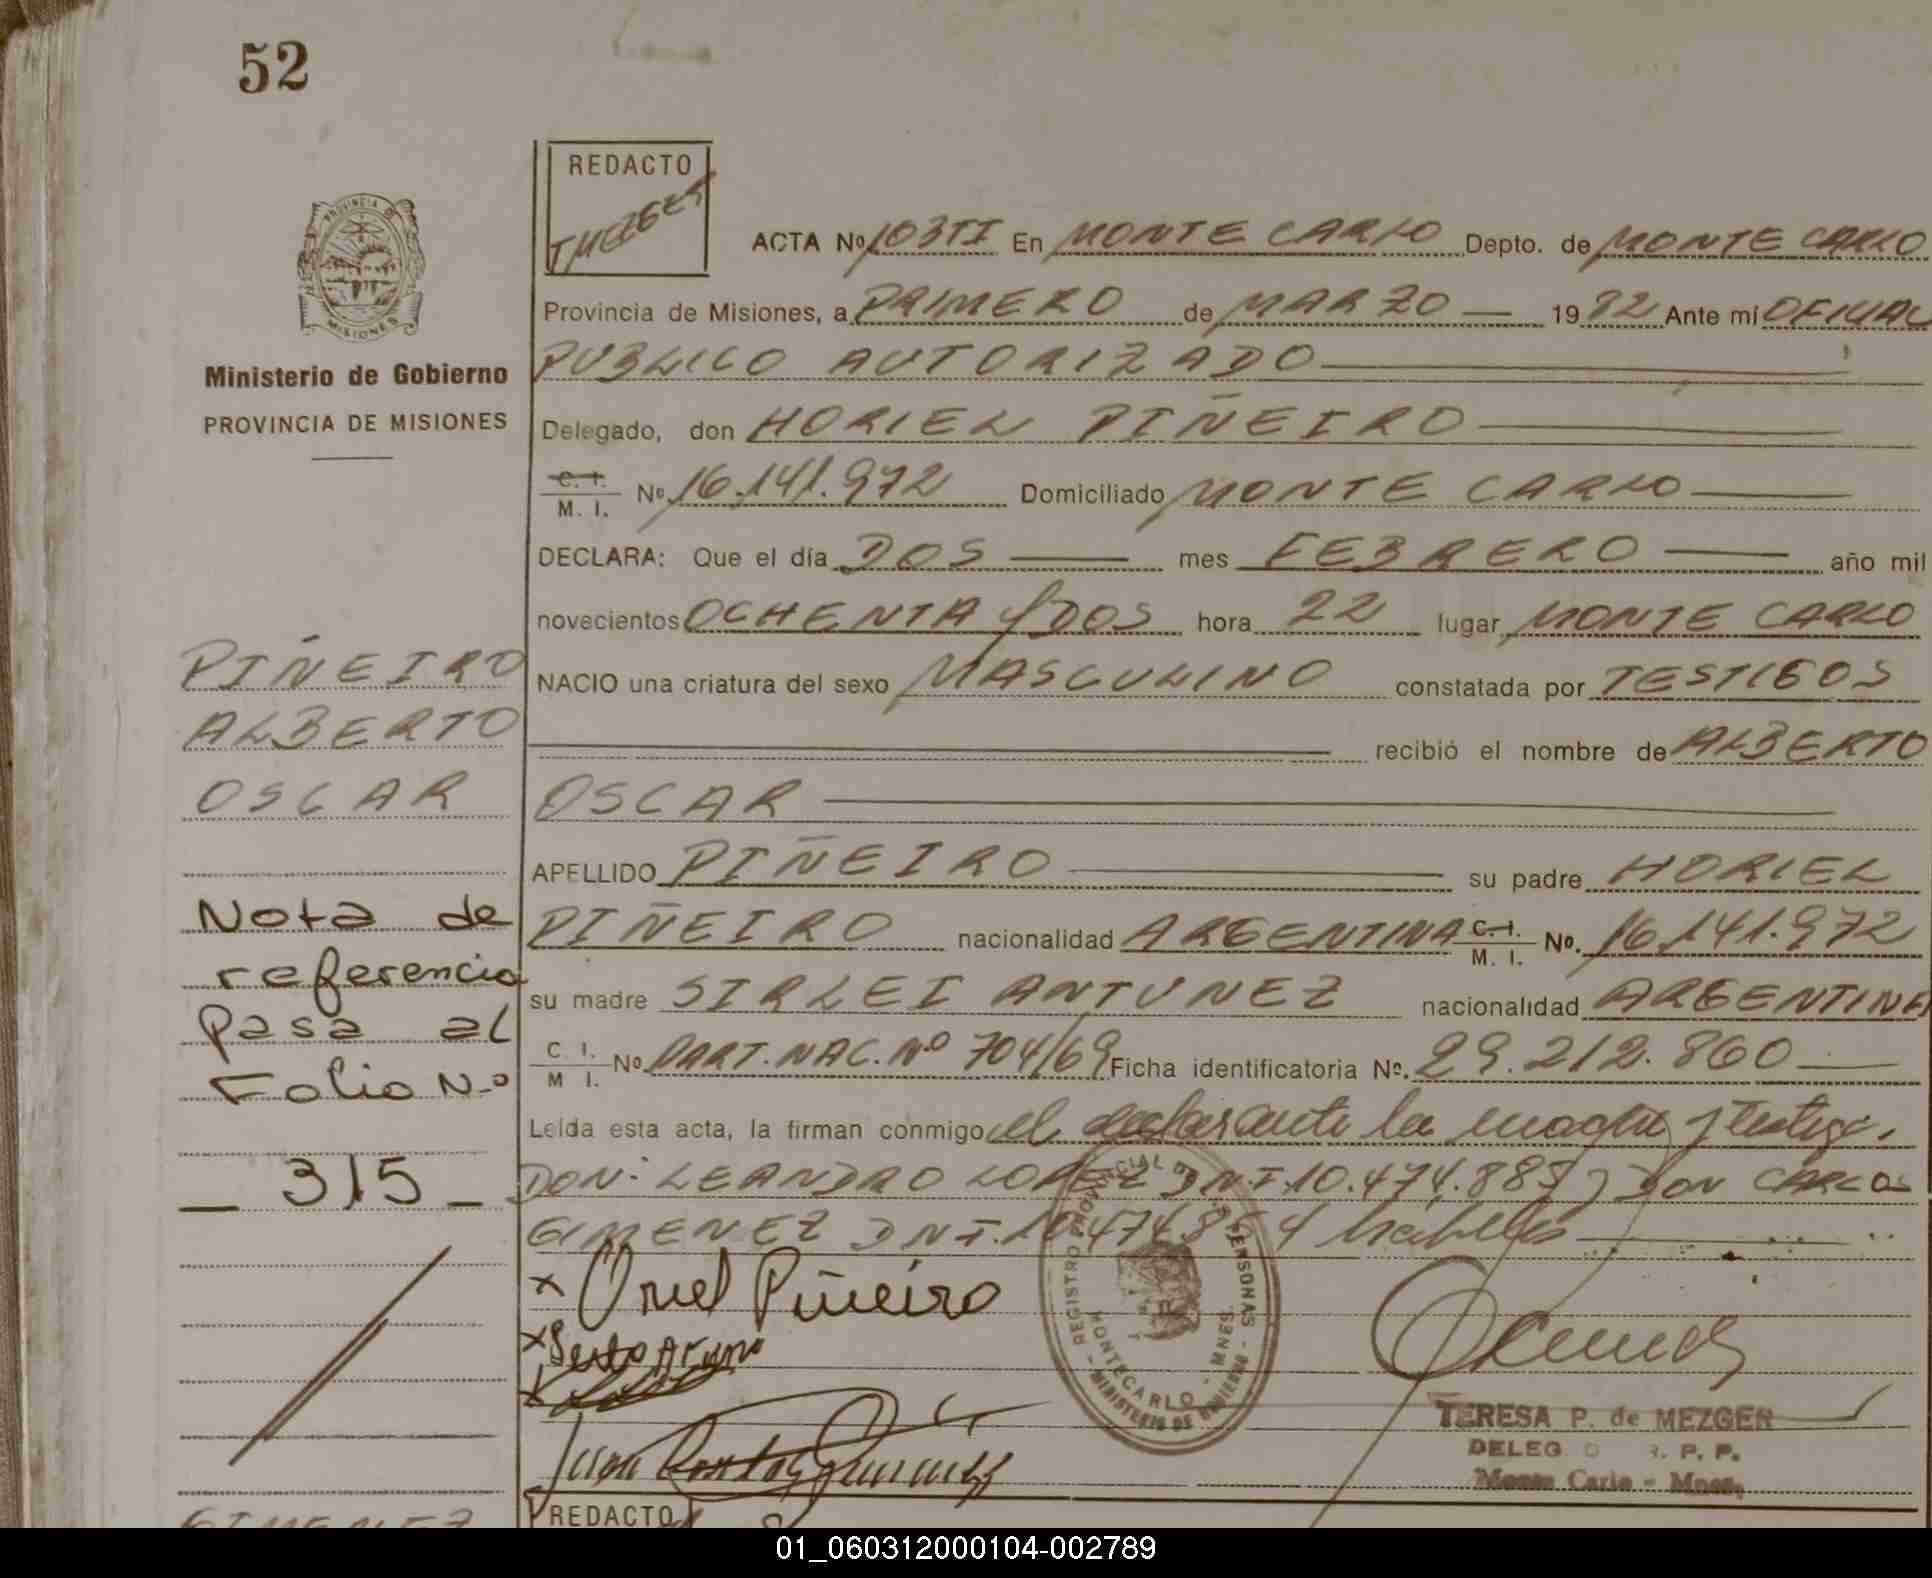 52
REDACTO
T MEZGER
PROVINCIA DE
MISIONES
Ministerio de Gobierno
PROVINCIA DE MISIONES
ACTA Nº 103TI En MONTE CARLO Depto. de MONTE CARLO
Provincia de Misiones, a PRIMERO de MARZO — 1982 Ante mí OFICIAL
PUBLICO AUTORIZADO
Delegado, don HORIEL PIÑEIRO
C. I.
M. I. Nº 16.141.972 Domiciliado MONTE CARLO
DECLARA: Que el día DOS mes FEBRERO año mil
novecientos OCHENTA Y DOS hora 22 lugar MONTE CARLO
NACIO una criatura del sexo MASCULINO constatada por TESTIGOS
recibió el nombre de ALBERTO
OSCAR
APELLIDO PIÑEIRO su padre HORIEL
PIÑEIRO nacionalidad ARGENTINA C. I. M. I. Nº. 16.141.972
su madre SIRLEI ANTUNEZ nacionalidad ARGENTINA
C. I. M I. Nº PART. NAC. Nº 704/69 Ficha identificatoria Nº. 29.212.860
Leída esta acta, la firman conmigo el declarante la madre y testigos
DON: LEANDRO LOPEZ DNI.10.474.885 y DON CARLOS
GIMENEZ DNI.10.474.8 4 habiles
PIÑEIRO
ALBERTO
OSCAR
Nota de
referencia
Pasa al
Folio Nº
— 315 —
x Oriel Piñeiro
REGISTRO PROVINCIAL DE PERSONAS
MONTECARLO - MNES.
MINISTERIO DE GOBIERNO
TERESA P. de MEZGER
DELEG R. P. P.
Monte Carlo - Mnes.
GIMENEZ
REDACTO
01_060312000104-002789